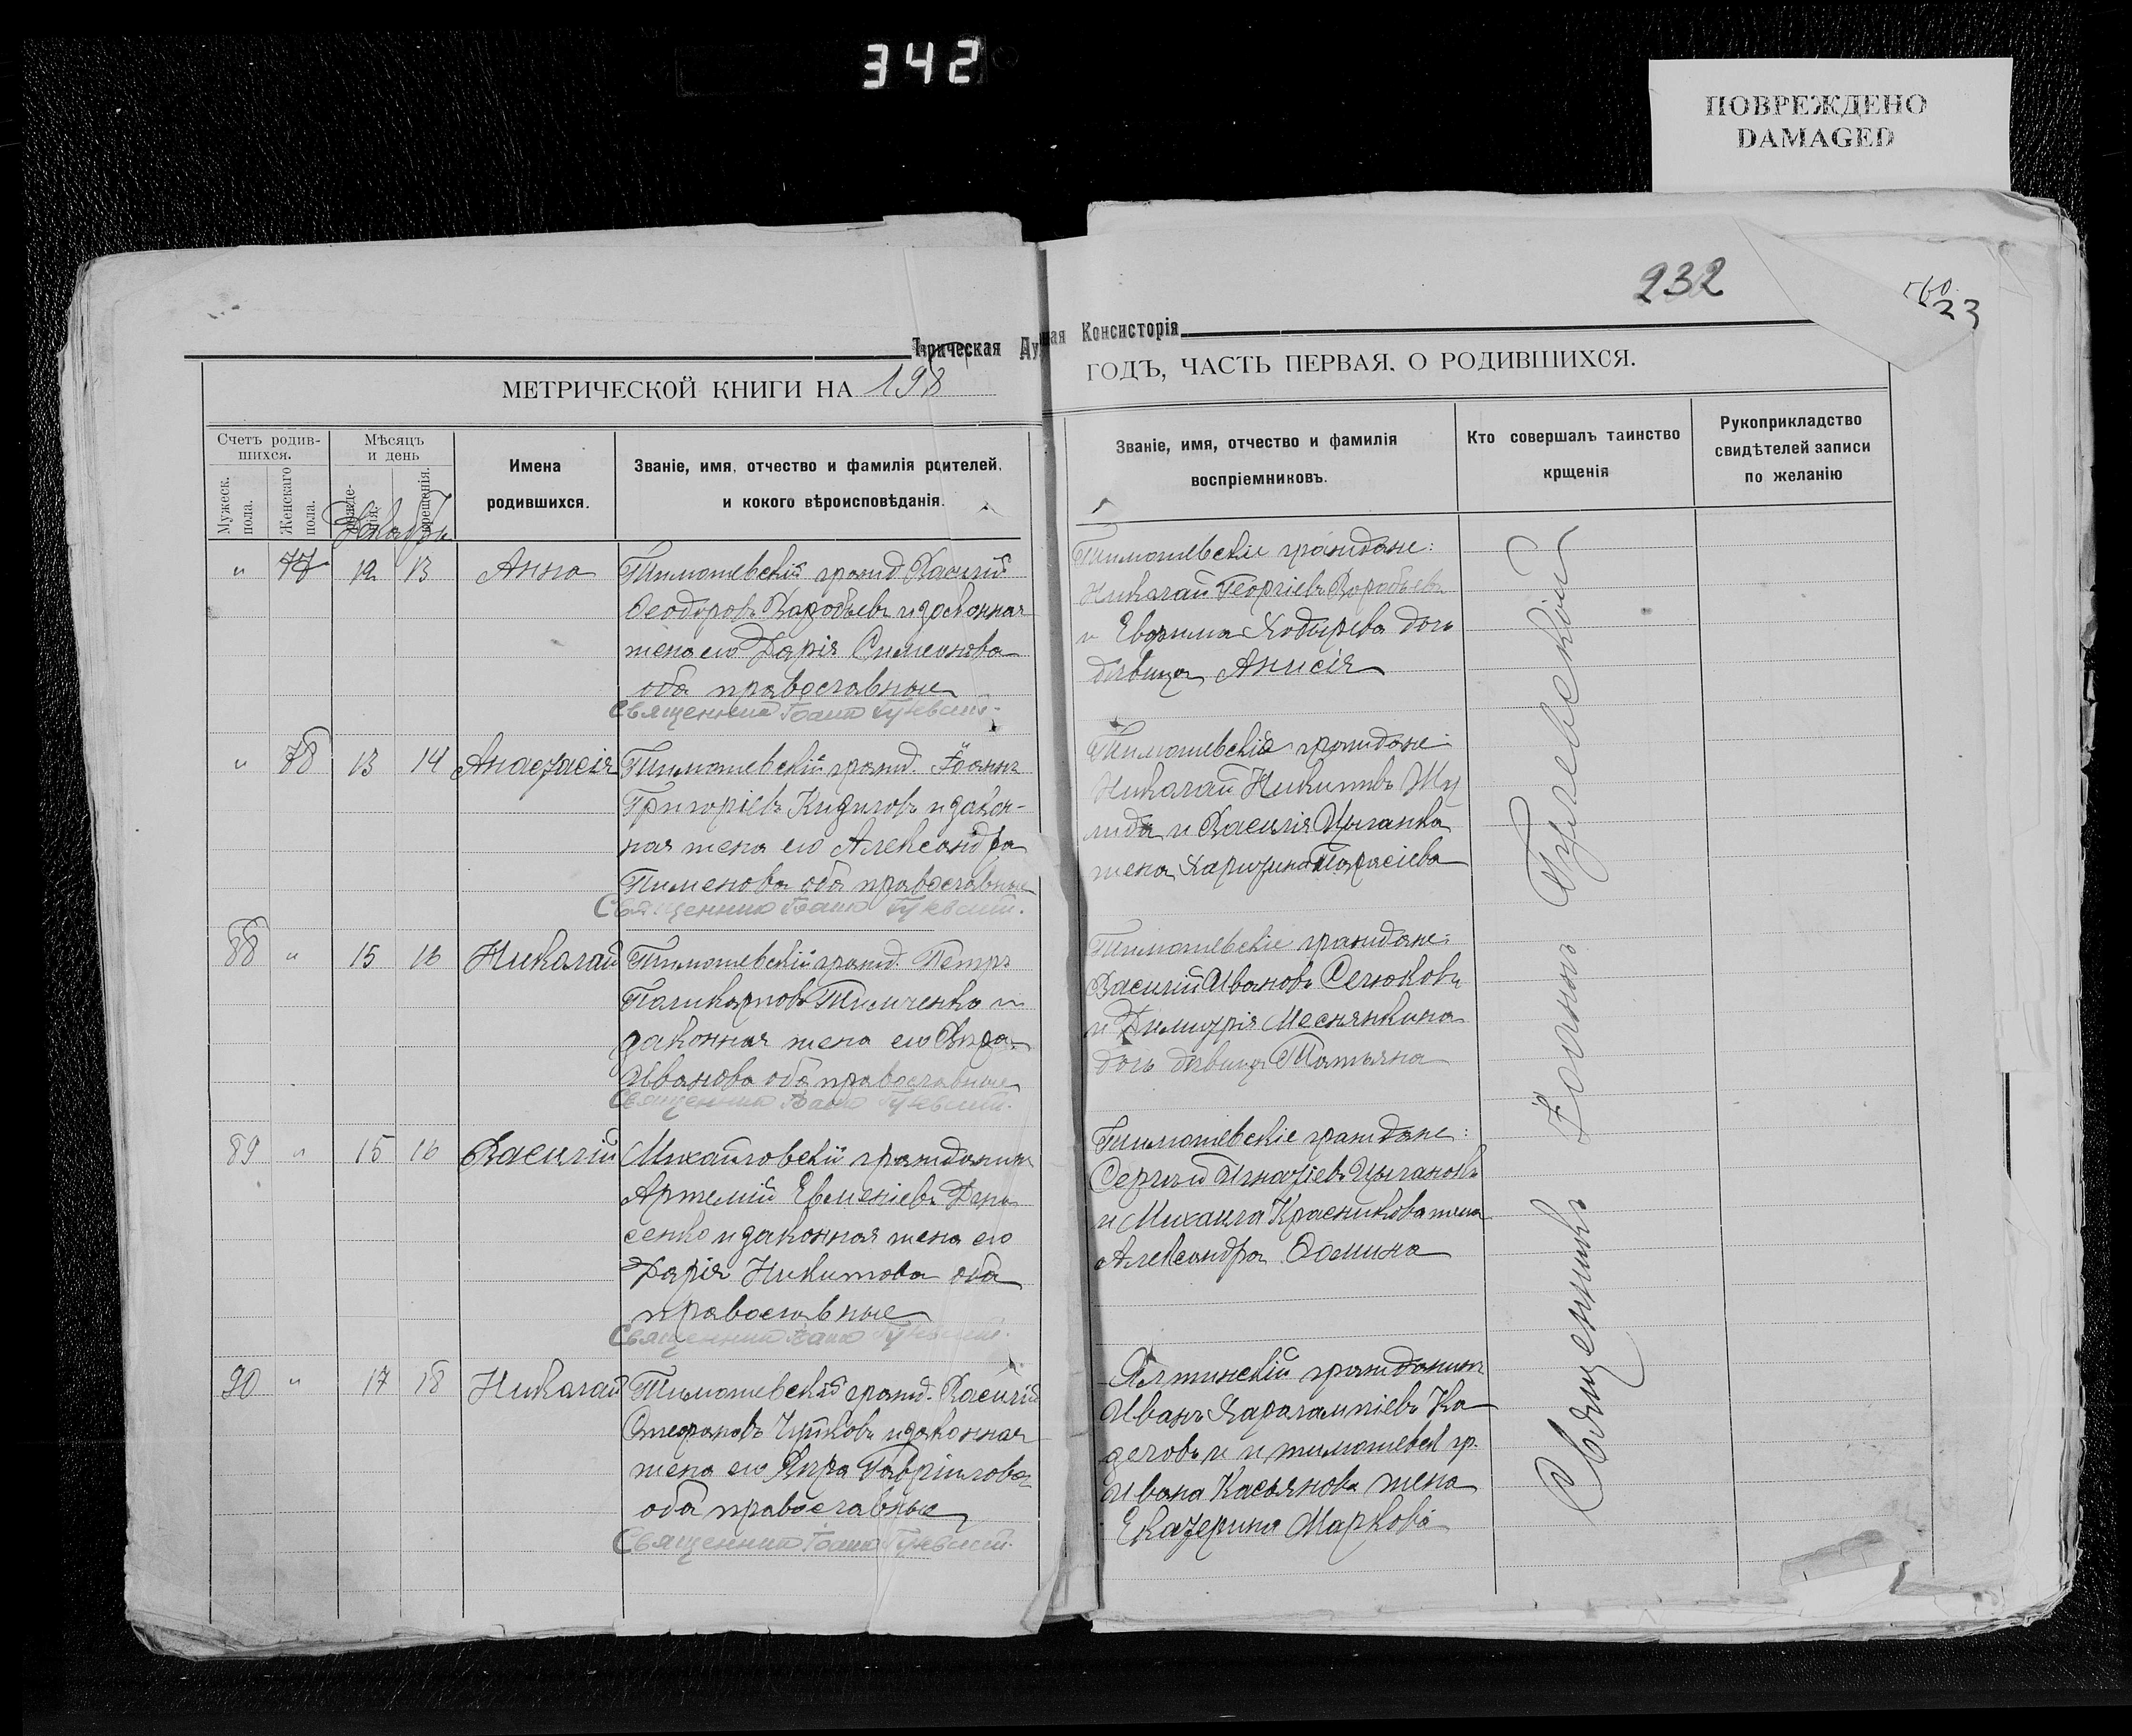 342
ПОВРЕЖДЕНО
DAMAGED
232
23
Таврическая Духовная Консисторія
МЕТРИЧЕСКОЙ КНИГИ НА 198
ГОДЪ, ЧАСТЬ ПЕРВАЯ. О РОДИВШИХСЯ.
Счетъ родив-
шихся.
Мужеск.
пола.
Женскаго
пола.
Мѣсяцъ
и день
рожде-
нія.
крещенія.
Имена
родившихся.
Званіе, имя, отчество и фамилія роителей,
и кокого вѣроисповѣданія.
Званіе, имя, отчество и фамилія
воспріемниковъ.
Кто совершалъ таинство
крщенія
Рукоприкладство
свидѣтелей записи
по желанію
Декабрь
" 77 12 13 Анна
Тимошевскій гражд. Василій
Ѳеодоровъ Воробьевъ и законная
жена его Дарія Симеонова
оба православные
Священникъ Іоаннъ
Тимошевскіе граждане:
Николай Георгіевъ Воробьевъ
и дочь
дѣвица Анисія
" 78 13 14 Анастасія
Тимошевскій гражд. Іоаннъ
Григоріевъ и закон-
ная жена его Александра
Пименова оба православные
Священникъ Іоаннъ
Тимошевскіе граждане:
Николай Никитинъ Жу
и Василія Цыганка
жена Тарасіева
88 " 15 16 Николай
Тимошевскій гражд. Петръ
Поликарповъ Тимченко и
законная жена его Вѣра
Иванова оба православные
Священникъ Іоаннъ
Тимошевскіе граждане:
Василій Ивановъ Сечюковъ
и Димитрія Меснянкина
дочь дѣвица Татьяна
89 " 15 16 Василій
Михайловскій гражданинъ
Артемій Евменіевъ Дени
сенко и законная жена его
Дарія Никитова оба
православные
Священникъ Іоаннъ
Тимошевскіе граждане:
Сергѣй Игнатіевъ Цыганокъ
и Михаила Красникова жена
Александра Ѳомина
90 " 17 18 Николай
Тимошевскій гражд. Василій
Стефановъ Чуйковъ и законная
жена его Вѣра Гавріилова
оба православные
Священникъ Іоаннъ
Ялтинскій гражданинъ
Иванъ Харалампіевъ Ка
и и тимошевск гр.
Ивана Касьянова жена
Екатерина Маркова
Священникъ Іоаннъ